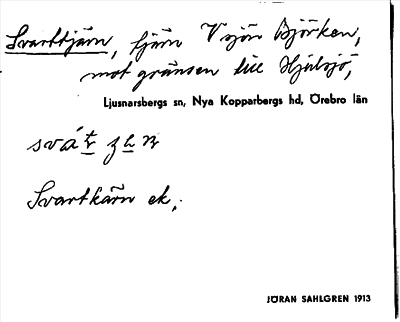 Svarttjärn, tjärn V sjön Björken,
mot gränsen till Hjulsjö,
Ljusnarsbergs sn, Nya Kopparbergs hd, Örebro län
Svartkärn ek.
JÖRAN SAHLGREN 1913